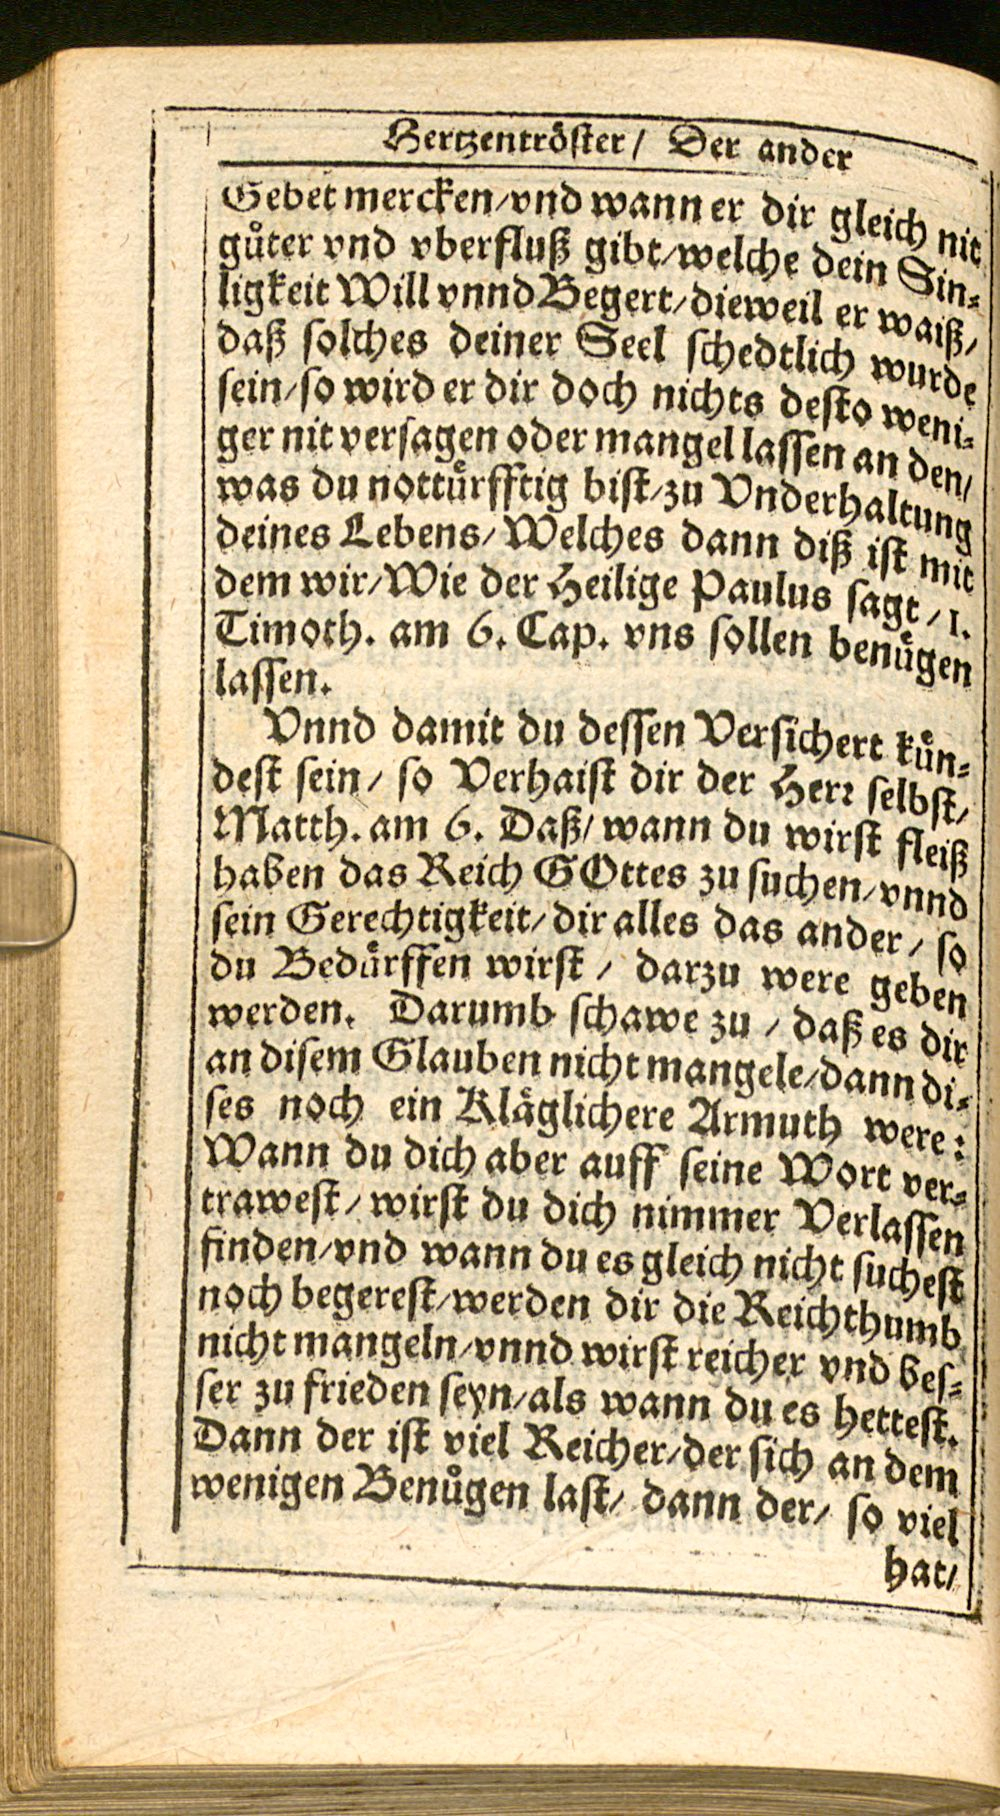 Hertzentröster / Der ander
Gebet mercken/vnd wann er dir gleich nit
guͤter vnd vberfluß gibt/welche dein Sin-
ligkeit Will vnnd Begert/dieweil er waiß/
daß solches deiner Seel schedtlich wurde
sein/so wird er dir doch nichts desto weni-
ger nit versagen oder mangel lassen an den/
was du nottuͤrfftig bist/zu Vnderhaltung
deines Lebens/Welches dann diß ist mit
dem wir/Wie der Heilige Paulus sagt/1.
Timoth. am 6. Cap. vns sollen benuͤgen
lassen.
Vnnd damit du dessen Versichert kuͤn-
dest sein/ so Verhaist dir der Herr selbst/
Matth. am 6. Daß/wann du wirst fleiß
haben das Reich GOttes zu suchen/vnnd
sein Gerechtigkeit/dir alles das ander/ so
du Beduͤrffen wirst / darzu were geben
werden. Darumb schawe zu / daß es dir
an disem Glauben nicht mangele/dann di-
ses noch ein Klaͤglichere Armuth were:
Wann du dich aber auff seine Wort ver-
trawest/wirst du dich nimmer Verlassen
finden/vnd wann du es gleich nicht suchest
noch begerest/werden dir die Reichthumb
nicht mangeln/vnnd wirst reicher vnd bes-
ser zu frieden seyn/als wann du es hettest.
Dann der ist viel Reicher/der sich an dem
wenigen Benuͤgen last/ dann der/ so viel
hat/